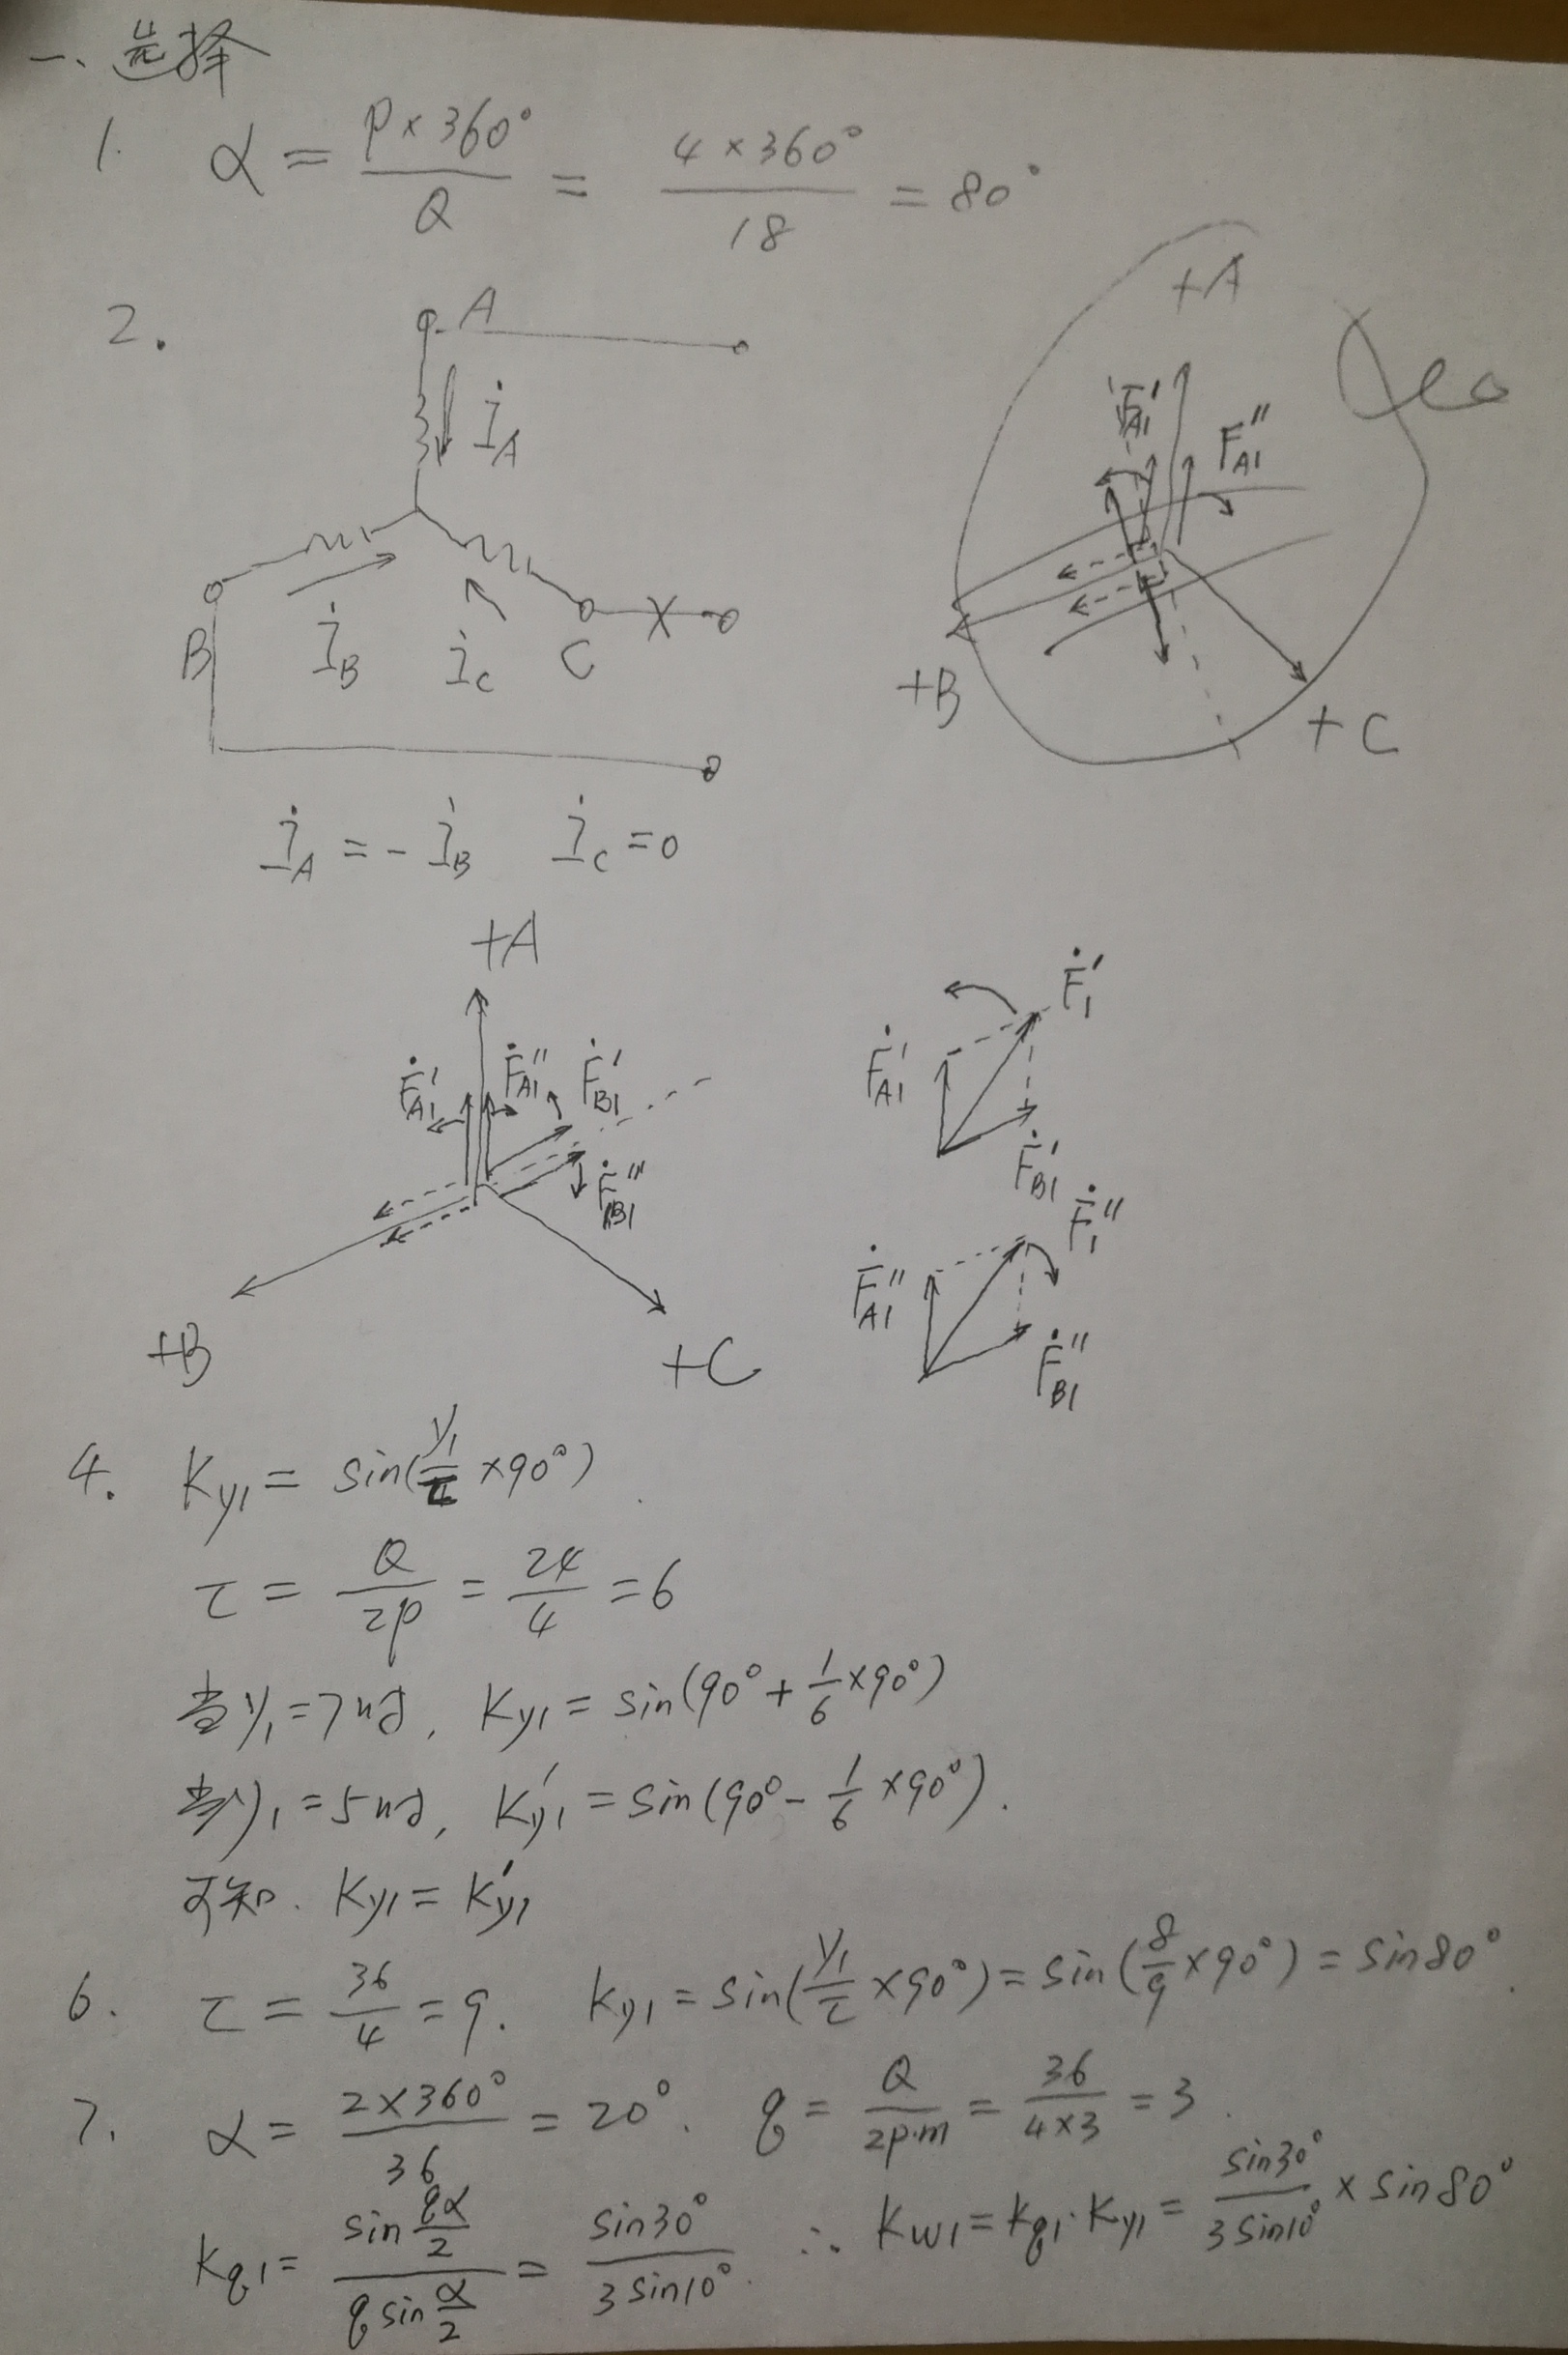 一、选择
1. α = P×360°/Q = 4×360°/18 = 80°
2.
A
İ_A
B
İ_B
İ_C
C
+A
Ḟ_A1'
F_A1''
+B
+C
İ_A = -İ_B İ_C = 0
+A
Ḟ_A1' Ḟ_A1'' Ḟ_B1'
Ḟ_B1''
+B
+C
Ḟ_1'
Ḟ_A1'
Ḟ_B1'
Ḟ_1''
Ḟ_A1''
Ḟ_B1''
4. K_y1 = sin(y_1/τ ×90°)
τ = Q/2P = 24/4 = 6
当y_1=7时, K_y1 = sin(90°+1/6×90°)
当y_1=5时, K_y1' = sin(90°-1/6×90°).
可知. K_y1 = K_y1'
6. τ = 36/4 = 9. K_y1 = sin(y_1/τ ×90°) = sin(8/9×90°) = sin80°.
7. α = 2×360°/36 = 20°. q = Q/2P·m = 36/4×3 = 3.
K_q1 = sin qα/2 / q sin α/2 = sin30°/3sin10°. ∴ K_w1 = K_q1·K_y1 = sin30°/3sin10° × sin80°